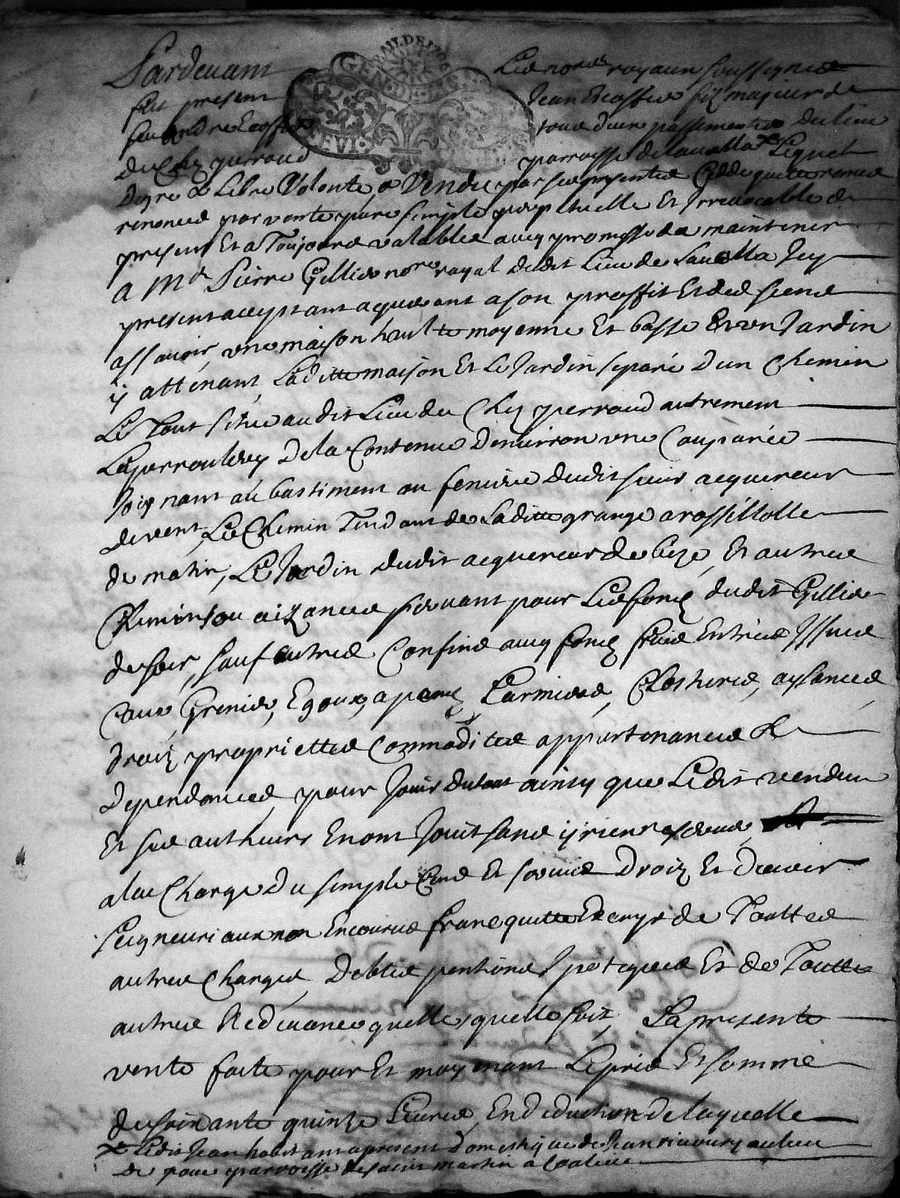 Pardevant Les nores royaux soussignés
fut present Jean Escoffie fiz majeur de
feu andre Escoffie
du Chez perraud parroisse de Lavalla Lequel
De gre & Libre Volonté a Vendu par ces presentes Cedde quitte remet
renonce par vente pure simple perpetuelle Et Irrevocable de
present Et a Toujours valable avec promesse de maintenir
A Me Pierre Gillier nore royal dudit Lieu de Lavalla Icy
present acceptant acquerant a son proffit Et des siens
assavoir une maison haulte moyenne Et basse Et un Jardin
y attenant Laditte maison Et Le Jardin separé D'un Chemin
Le Tout situe audit Lieu du Chez perraud autrement
De la Contenue D'environ une Couparée
Joignant au bastiment ou feniere dudit sieur acquereur
de vent, Le Chemin Tendant de Laditte grange a rossillolle
de matin, Le Jardin dudit acquereur de bize, Et autres
Chemins ou aizances servant pour Les fonds dudit Gillier
de soir, sauf autres Confins avec fonds fruis Entrées Issues
Eaux Grenier, Egoux, apens, Larmiers, Clostures, aysances
droiz proprietter Commodites appartenances &
Dependances pour Jouir du tout ainsy que Ledit vendeur
Et ses autheurs En ont Jouit sans y rien reserver
a la Charge du simple Cens Et servis Droiz Et Devoirs
seigneuriaux non Encourus franc quitte Exempt de Touttes
autres Charges, Debtes pentions Ipotques Et de Touttes
autres Redevances quelles quelle soit, La presente
vente faite pour Et moyenant Le prix Et somme
de soixante quinze Livres En deduction de laquelle
Ledit Jean habitant apresent Domestique de Jean au lieu
de parroisse de saint martin a Coalieu